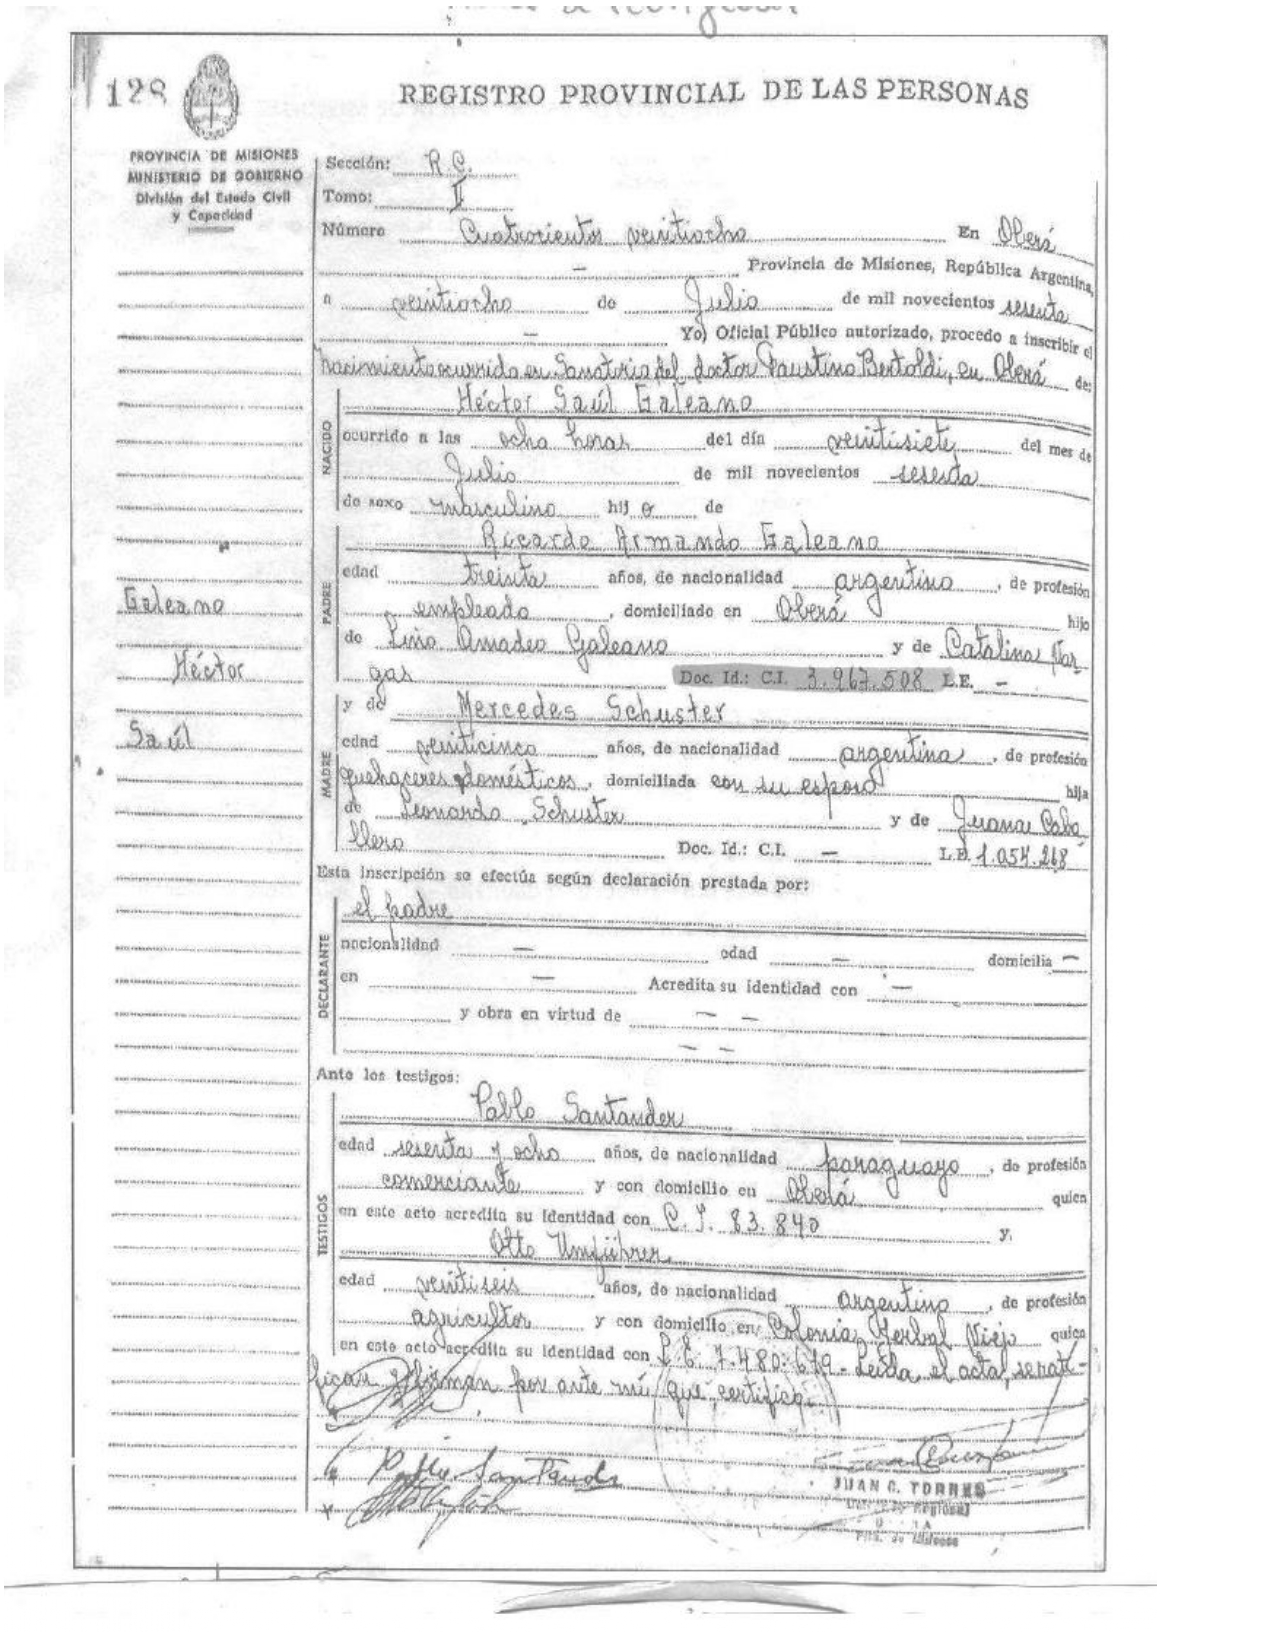 128
REGISTRO PROVINCIAL DE LAS PERSONAS
PROVINCIA DE MISIONES
MINISTERIO DE GOBIERNO
División del Estado Civil
y Capacidad
Sección: R.C.
Tomo: II
Número Cuatrocientos veintiocho En Oberá
— Provincia de Misiones, República Argentina,
a veintiocho de Julio de mil novecientos sesenta
— Yo) Oficial Público autorizado, procedo a inscribir el
nacimiento ocurrido en Sanatorio del doctor Faustino Bertoldi, en Oberá de:
NACIDO
Héctor Saúl Galeano
ocurrido a las ocho horas del día veintisiete del mes de
Julio de mil novecientos sesenta
de sexo masculino hij o de
PADRE
Ricardo Armando Galeano
edad treinta años, de nacionalidad argentino, de profesión
empleado, domiciliado en Oberá hijo
de Lino Amadeo Galeano y de Catalina Var
gas Doc. Id.: C.I. 3.967.508 L.E. —
Galeano
Héctor
Saúl
MADRE
y de Mercedes Schuster
edad veinticinco años, de nacionalidad argentina, de profesión
quehaceres domésticos, domiciliada con su esposo hija
de Leonardo Schuster y de Juana Caba
llero Doc. Id.: C.I. — L.E. 1.054.268
Esta inscripción se efectúa según declaración prestada por:
DECLARANTE
el padre
nacionalidad — edad — domicilia —
en — Acredita su identidad con —
y obra en virtud de — —
— —
Ante los testigos:
TESTIGOS
Pablo Santander
edad sesenta y ocho años, de nacionalidad paraguayo, de profesión
comerciante y con domicilio en Oberá quien
en este acto acredita su identidad con C.I. 83.840 y.
Otto Umführer
edad veintiseis años, de nacionalidad argentino, de profesión
agricultor y con domicilio en Colonia Yerbal Viejo quien
en este acto acredita su identidad con L.E. 7.480.619 - Leída el acta, serati-
fican y firman por ante mí que certifico.
Pablo Santander
JUAN C. TORRES
Regional
Pcia. de Misiones